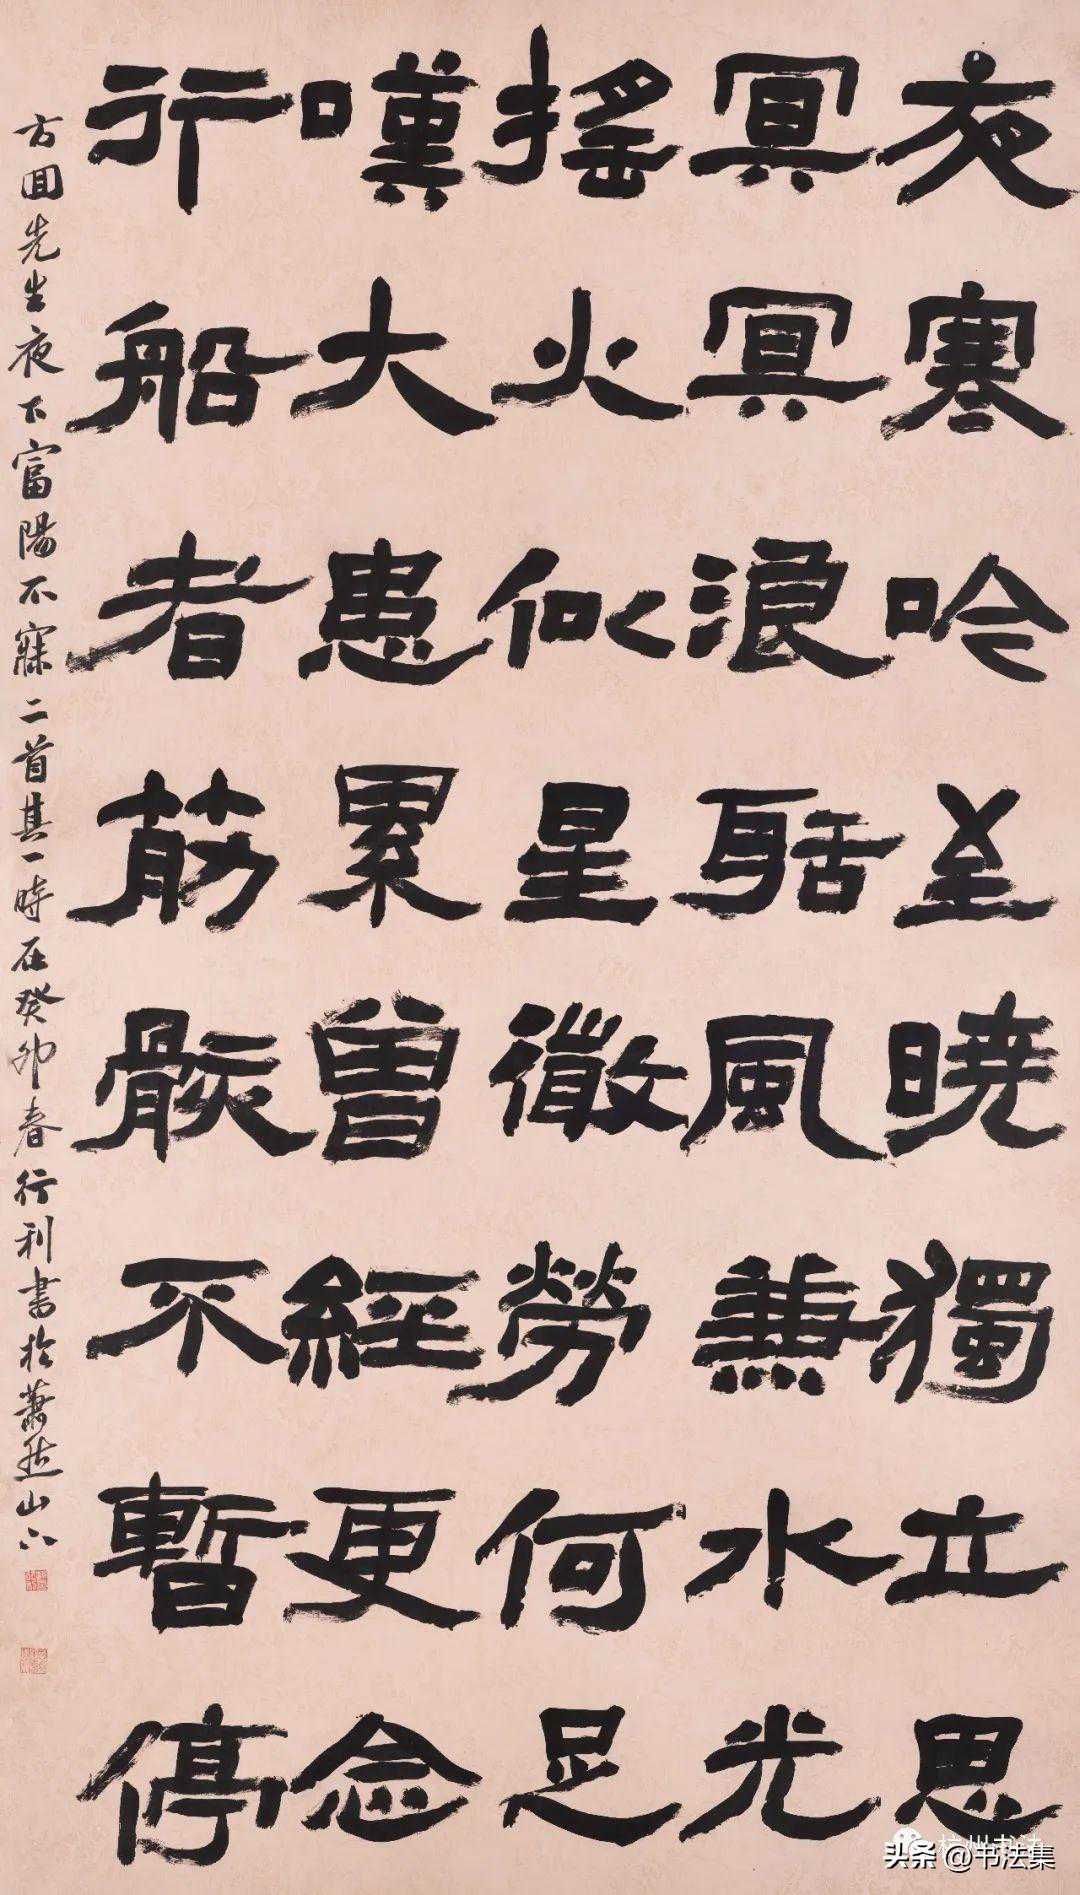 夜寒吟至曉獨立思
冥冥浪聒風兼水光
搖火似星微勞何足
嘆大患累曾經更念
行船者筋骸不暫停
方回先生夜下富陽不寐二首其一時在癸卯春行利書於蕭然山下
杭州书法
头条 @书法集